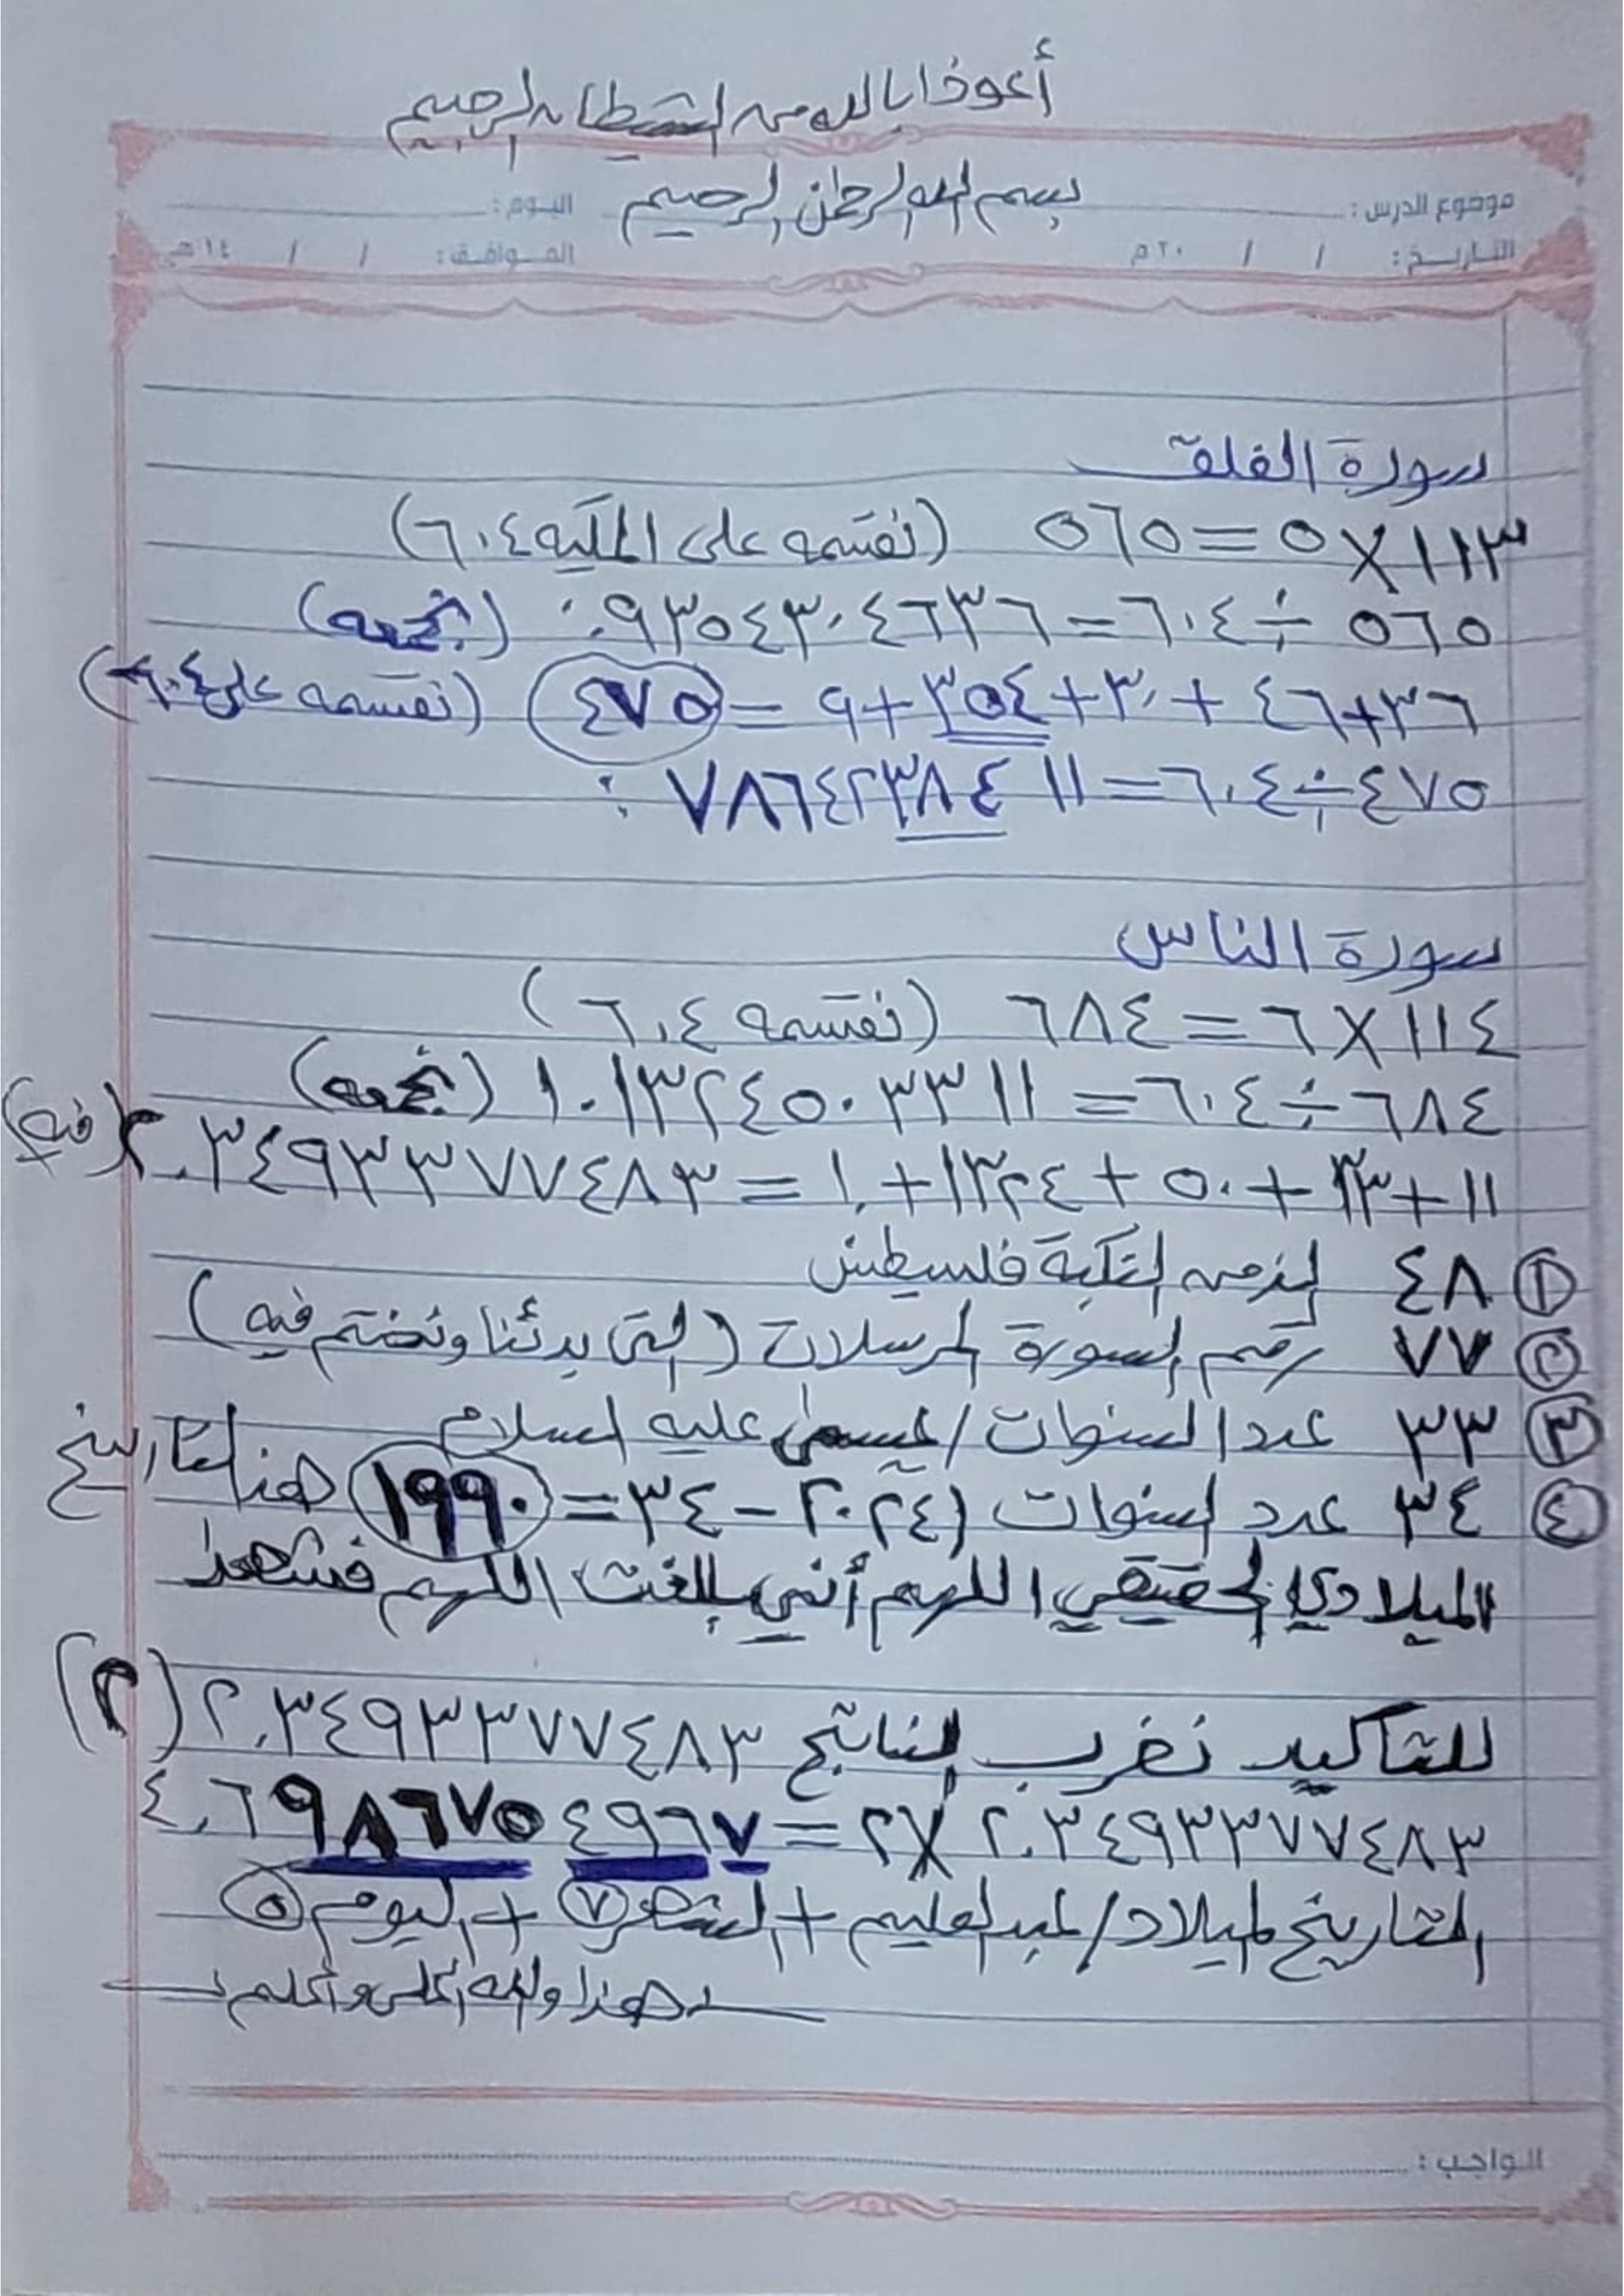 أعوذا بالله من الشيطان الرجيم
بسم الله الرحمن الرحيم
موضوع الدرس : اليوم :
التاريخ : / / ٢٠م الموافق : / / ١٤هـ
سورة الفلق
١١٣ X ٥ = ٥٦٥ (نقسمه على المكيه ٦٠٤)
٥٦٥ ÷ ٦٠٤ = ٠.٩٣٥٤٣٠٤٦٣٦ (نجمعه)
٣٦+٤٦ + ٣٠ + ٣٥٤ + ٩ = ٤٧٥ (نقسمه على ٦٠٤)
٤٧٥ ÷ ٦٠٤ = ٧٨٦٤٢٣٨٤١١
سورة الناس
١١٤ X ٦ = ٦٨٤ (نقسمه ٦٠٤)
٦٨٤ ÷ ٦٠٤ = ١.١٣٢٤٥٠٣٣١١ (نجمعه)
١١ + ٣٣ + ٥٠ + ١٣٢٤ + ١٠ = ٢.٣٤٩٣٣٧٧٤٨٣ (فيه)
١ ٤٨ النكبة فلسطين
٢ ٧٧ رقم السورة المرسلات (التي بدئنا ونختم فيه)
٣ ٣٣ عدد السنوات / عيسى عليه السلام
٤ ٣٤ عدد السنوات (٢٠٢٤ – ٣٤ = ١٩٩٠ هذا التاريخ
الميلادي الحقيقي اللهم أني بلغت اللهم فشهدا
للتأكيد نضرب الناتج ٢.٣٤٩٣٣٧٧٤٨٣ (٢)
٢.٣٤٩٣٣٧٧٤٨٣ X ٢ = ٤.٦٩٨٦٧٥٤٩٦٧
التاريخ لميلاد / عبدالعليم + الشهر ٧ + اليوم ٥
هذا والله أعلى وأعلم
الواجب :